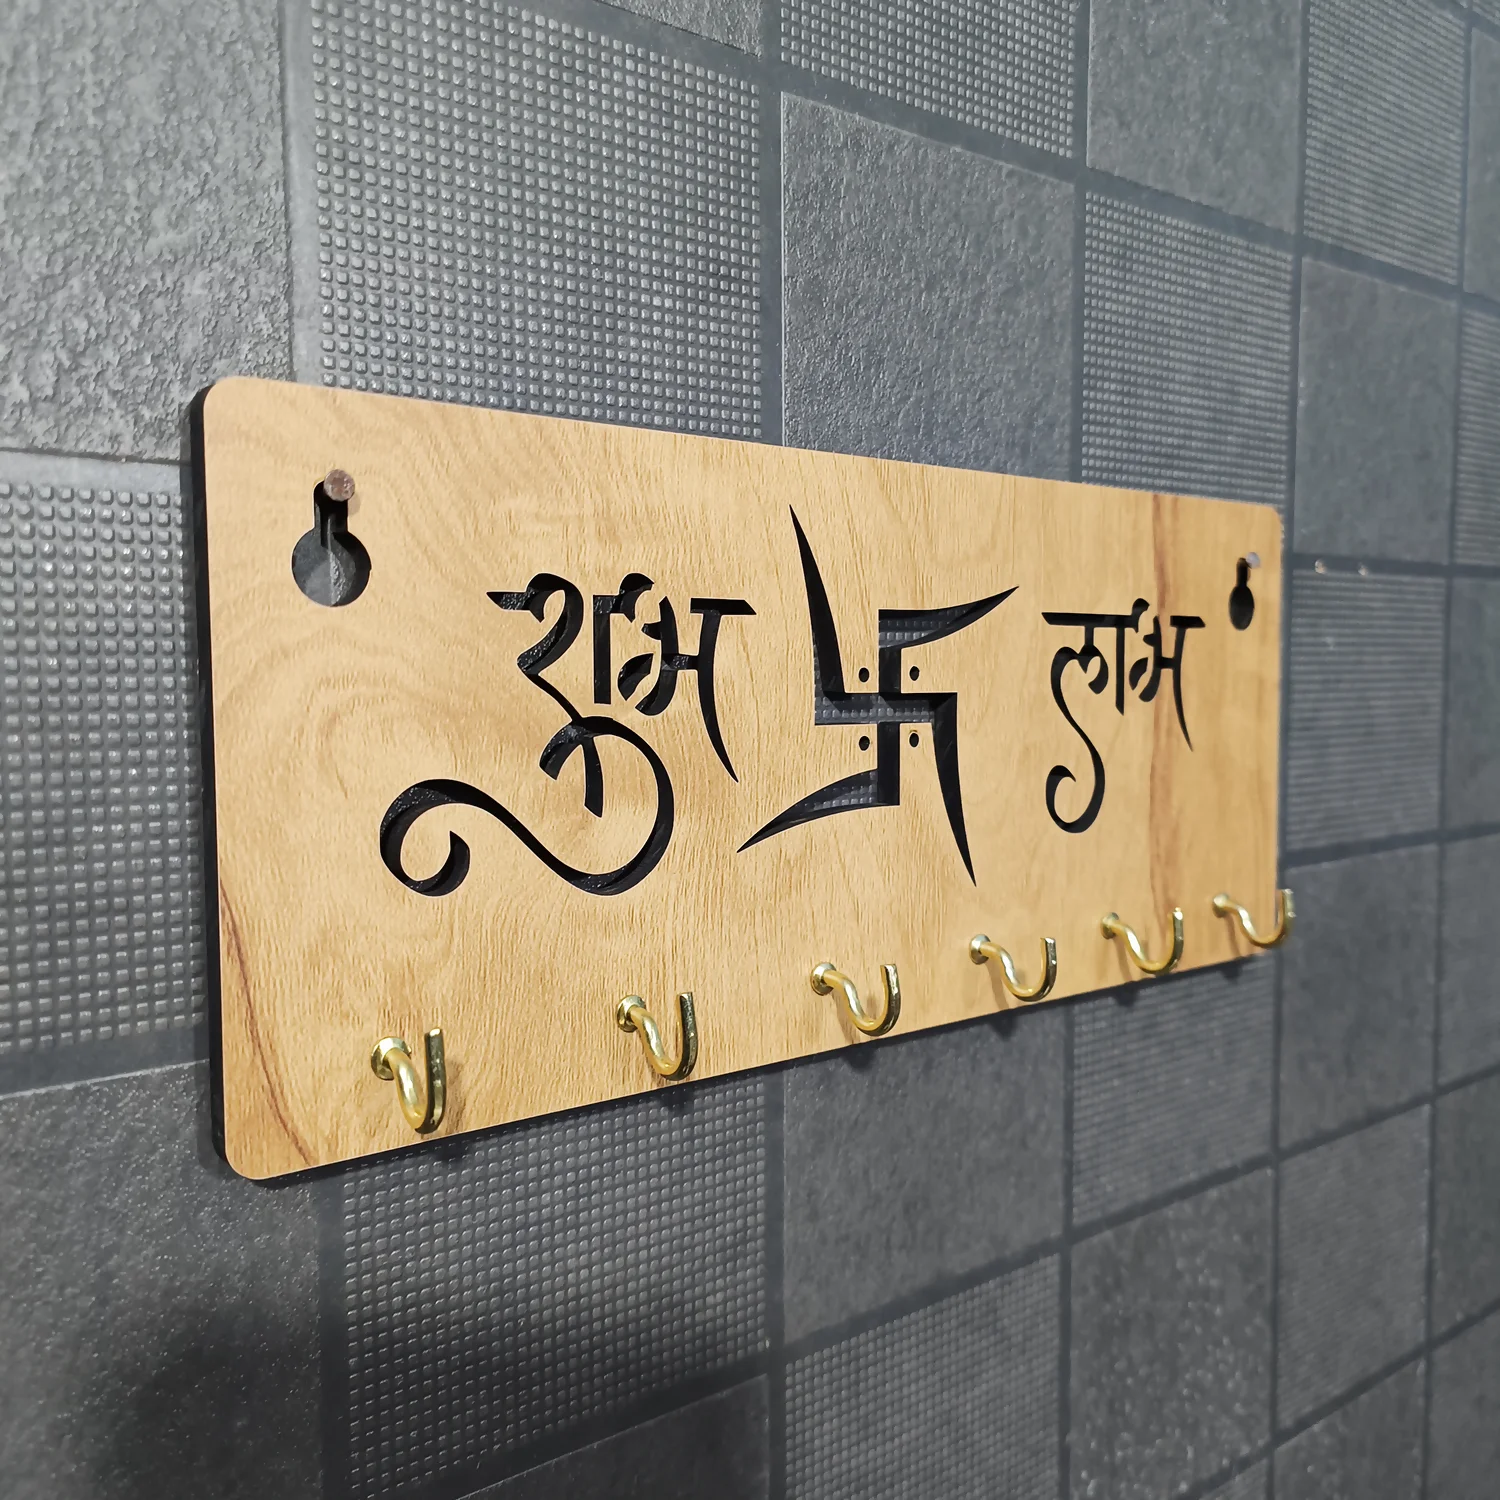 शुभ 卐 लाभ